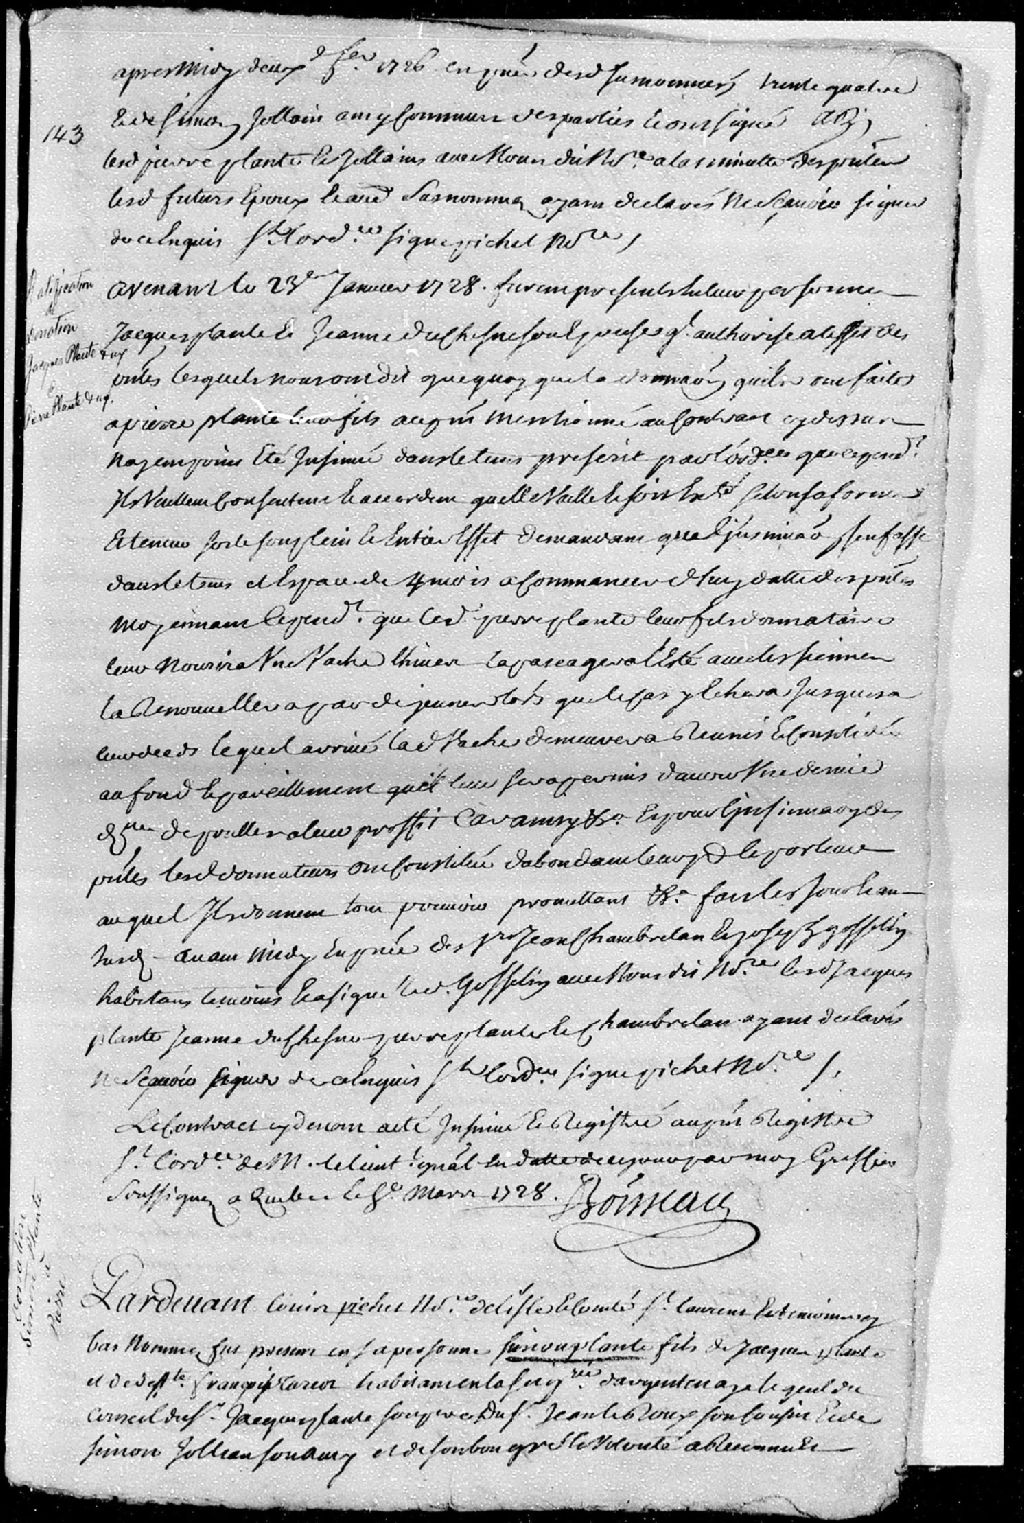 apres midy deux.e fev.er 1726 en pñce desd. temoins trente quatre
Et de Simon Jollain amy Commun des parties le soussigné
143
lesd pierre plante Et Jollains avec Nous dit No.re a la minutte des pñtes
lesd futurs Epoux Et aud. ayans declarés Ne Sçavoir signer
de ce Enquis St. lord.ce signe pichet No.re /
Ratification
de
donation
Jacques Plante & ux
à
Pierre Plante & ux.
avenant le 23e Janvier 1728. furent presents En leurs personnes
Jacques plante Et Jeanne duChesne son Epouse q.l authorise a leffet des
pñtes lesquels nous ont dit que quoy que la donnaõn quils ont faite
a pierre plante leur fils au pñt Mentionné au Contract cy dessus
Nayent point Eté Insinué dans le tems prescrit par lord.ce que cepend.t
Ils Veullent Consentent Et accordent quelle Vaille Et soit selon sa forme
Et teneur sorte son plein Et Entier Effet demandant que l'Insinuaõn sen fasse
dans le tems et Espace de 4 mois a Commancer de datte des pñtes
Moyennant Cepend.t que led. pierre plante leur fils donnataire
leur Nourira Une Vache lhiver Et pascagera l'Esté avec les siennes
la Renouvellera par de jeunes que le cas y Echera Jusques a
leur deceds lequel arrivé lad Vache demeurera Reunis Et Consolidée
au fond Et pareillement quil leur sera permis davoir Une demie
de poulles a leur proffit Car ainsy &a Et pour l'Insinuaõn des
pñtes lesd donnateurs ont Constitué dabondant leur p.r le porteur
auquel Ils donnent tout pouvoir promettant &a. fait les Jour Et an
susd. avant midy En pñce des Srs Jean Chambrelan Et Joseph gosselin
habitans temoins Et a signé led. Gosselin avec Nous dit No.re lesd Jacques
plante Jeanne duChesne pierre plante Et Chambrelan ayans declarés
Ne Sçavoir signer de ce Enquis St. lord.ce signe pichet No.re /.
Le Contract cy devant a eté Insinué Et Registré au pñt Registre
St. Lord.ce de M. le lieut.t gñal En datte de ce jour par moy Greffier
Soussigné a Quebec le 8e Mars 1728. Boisseau
Donation
Simon Plante
à
Pierre
Pardevant Louis pichet No.re de lisle Et Comté St. laurent Et temoins cy
bas Nommez fut present en sa personne Simon plante fils de Jacques plante
et de deff.te françoise Turcot habitant en la seig.rie dargentenaye Lequel du
Conseil du S.r Jacques plante son pere Du S.r Jean le Roux son Cousin Et de
Simon Jollain son amy et de son bon gré Et Volonté a Reconnu Et